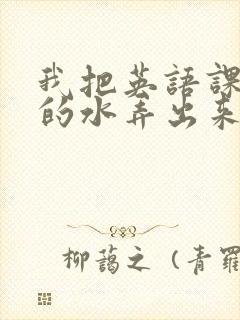 我把英語課
的水弄出来
柳藹之（青羅